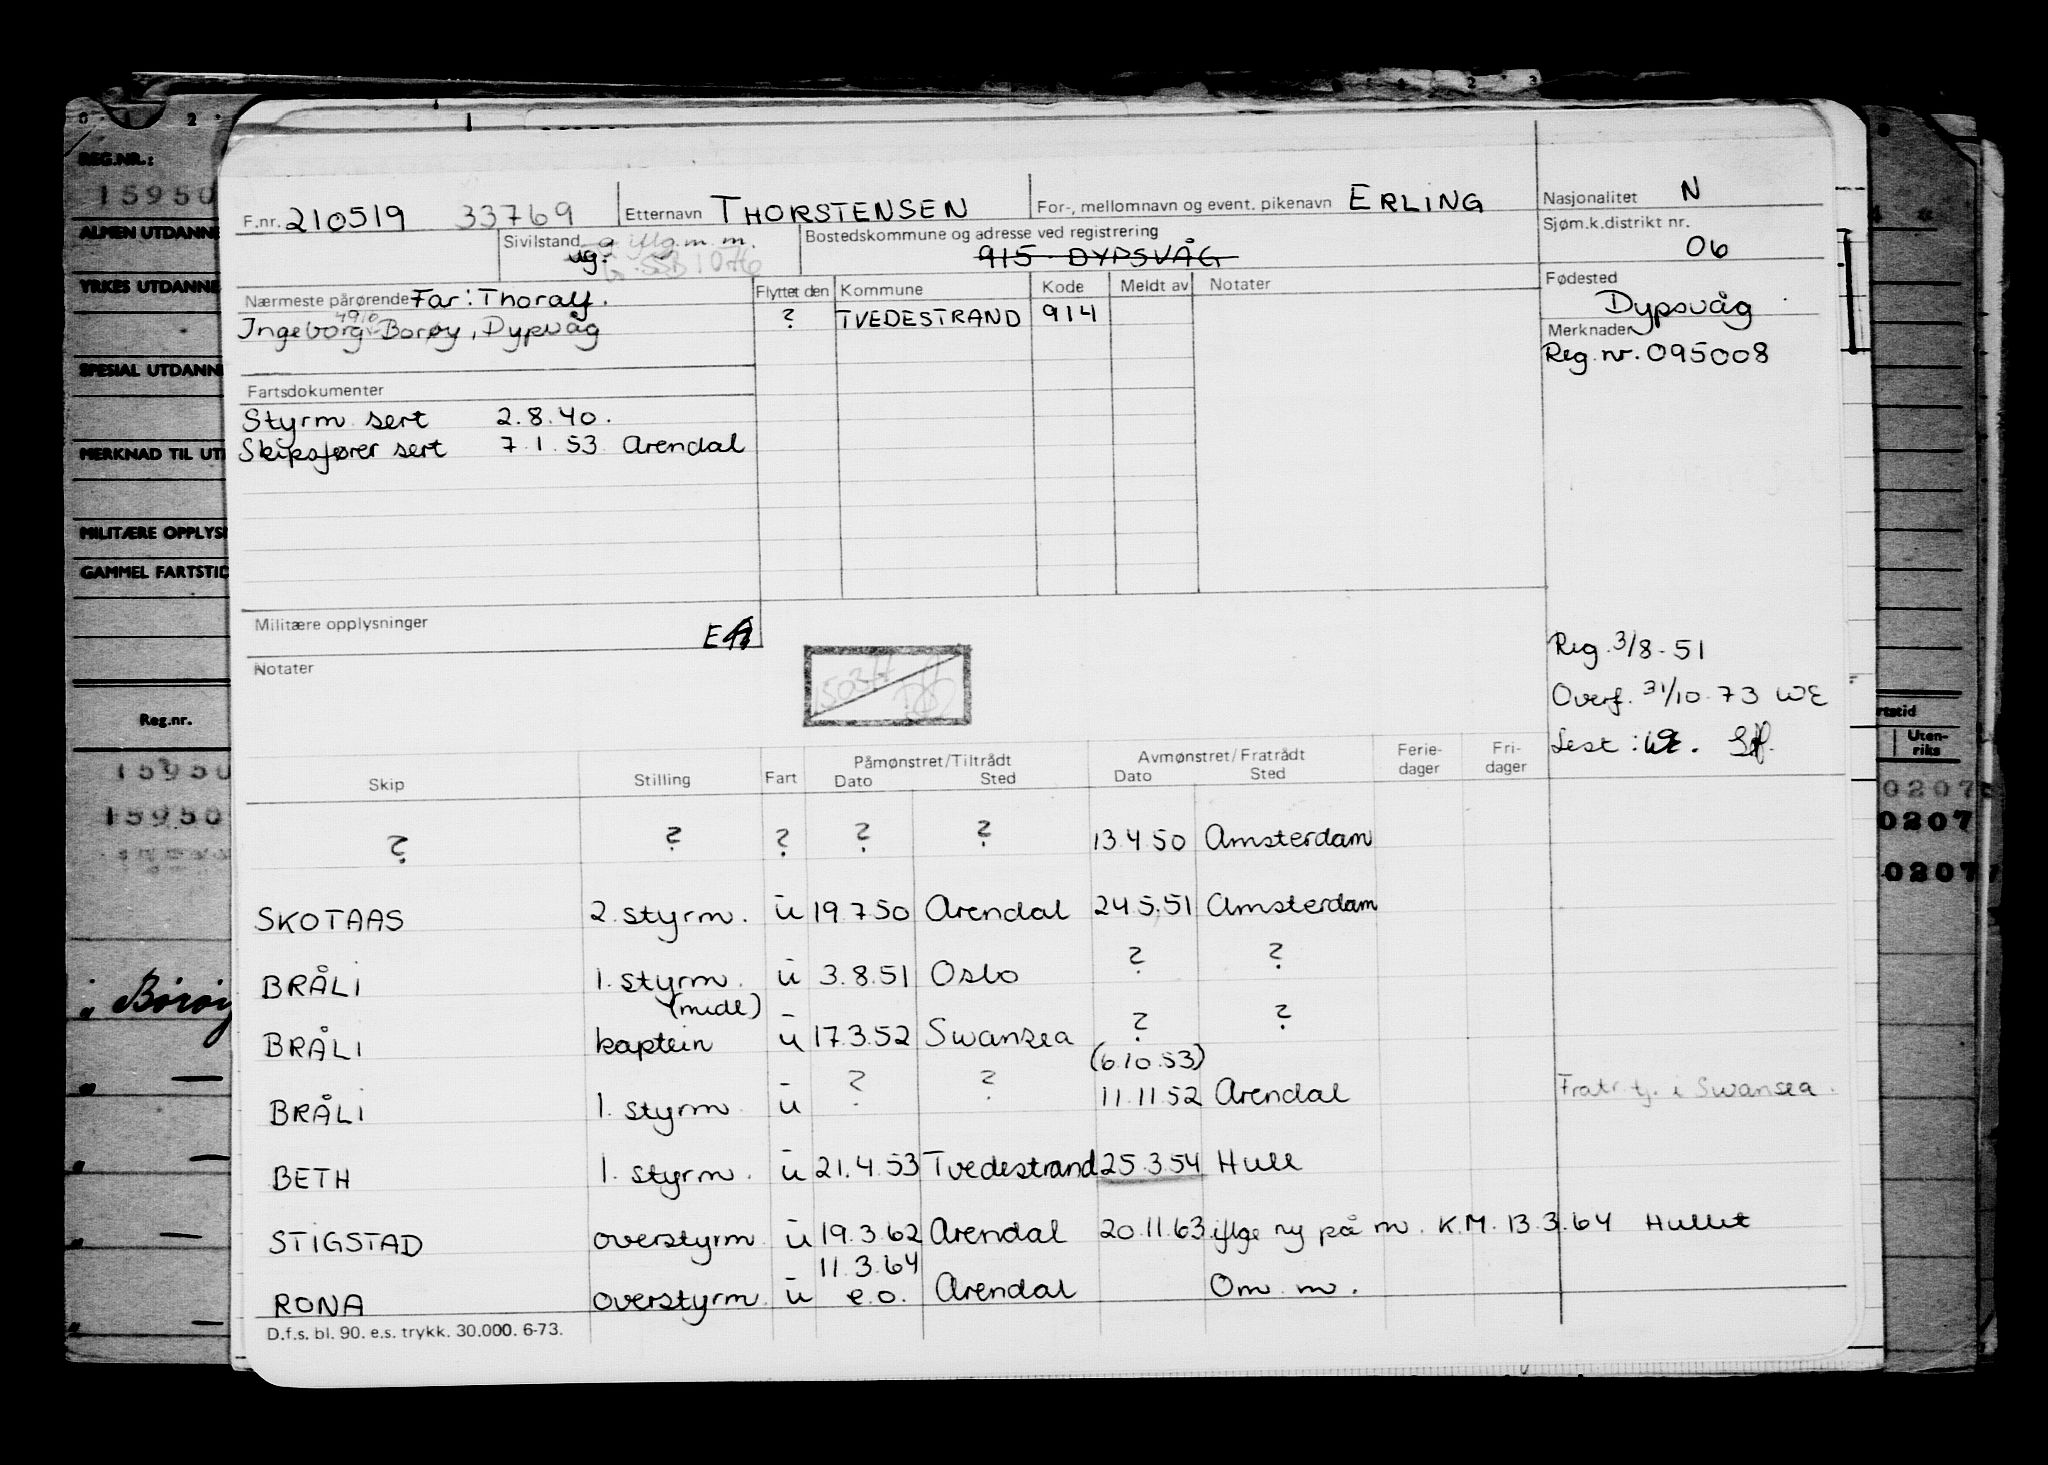 0 1 2
2 3
REG.NR.:
15950
ALMEN UTDANNE
YRKES UTDANNE
SPESIAL UTDANNE
MERKNAD TIL UT
MILITÆRE OPPLYS
GAMMEL FARTSTID
Reg.nr.
15950
15950
Borøy
F.nr. 210519 33769 Etternavn THORSTENSEN For-, mellomnavn og event. pikenavn ERLING Nasjonalitet N
Sivilstand ug. g iflg. m.m. Bostedskommune og adresse ved registrering Sjøm.k.distrikt nr.
915 DYPSVÅG 06
Nærmeste pårørende Far: Thoralf. Flyttet den Kommune Kode Meldt av Notater Fødested
Dypsvåg
Ingeborg 4910 Borøy, Dypvåg ? TVEDESTRAND 914 Merknader
Reg. nr. 095008
Fartsdokumenter
Styrm sert 2.8.40.
Skipsfører sert 7.1.53 Arendal
Militære opplysninger
Notater
Reg. 3/8-51
Overf. 31/10-73 WE
Lest: WE.
Skip Stilling Fart Påmønstret/Tiltrådt Dato Sted Avmønstret/Fratrådt Dato Sted Ferie-dager Fri-dager
? ? ? ? ? 13.4.50 Amsterdam
SKOTAAS 2. styrm. u 19.7.50 Arendal 24.5.51 Amsterdam
BRÅLI 1. styrm. u 3.8.51 Oslo ? ?
BRÅLI (midl) kaptein u 17.3.52 Swansea ? ?
BRÅLI 1. styrm u ? ? (6.10.53) 11.11.52 Arendal Fratr. tj. i Swansea.
BETH 1. styrm. u 21.4.53 Tvedestrand 25.3.54 Hull
STIGSTAD overstyrm u 19.3.62 Arendal 20.11.63 iflge ny på m. K.M. 13.3.64 Hullet
RONA overstyrm. u 11.3.64 e.o. Arendal Om m.
D.f.s. bl. 90. e.s. trykk. 30.000. 6-73.
rtstid
Uten-
riks
0207
0207
0207